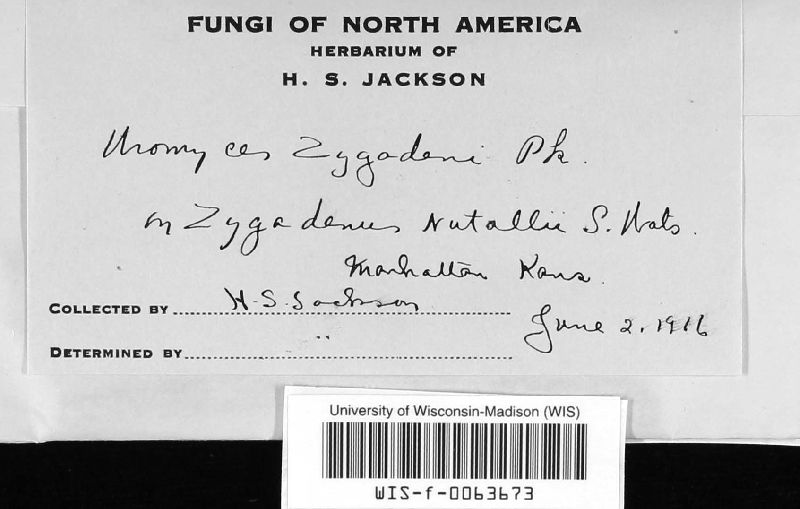 FUNGI OF NORTH AMERICA
HERBARIUM OF
H. S. JACKSON
Uromyces Zygadeni Pk.
on Zygadenus Nutallii S. Wats.
Manhattan Kans.
COLLECTED BY H. S. Jackson
June 2, 1916
DETERMINED BY "
University of Wisconsin-Madison (WIS)
WIS-f-0063673